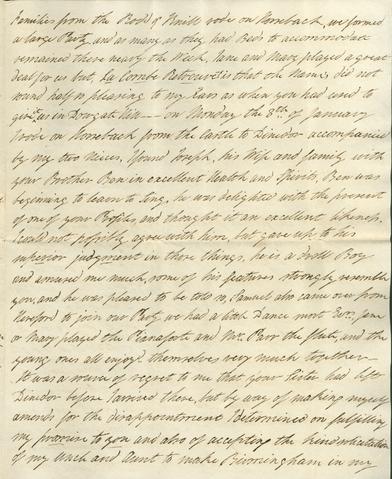 Families from the Rodd & Knill rode on Horseback, we formed
a large Party, and as many as they had Beds to accommodate
remained there nearly the Week, Jane and Mary played a great
deal for us but, La Combe did not
sound half so pleasing to my Ears as when you had used to
give us in Dowgate Hill — on Monday the 8th of January
I rode on Horseback from the Garth to Dinedor accompanied
by my two Nieces, I found Joseph, his Wife and family with
your Brother Ben in excellent Health and Spirits, Ben was
beginning to learn to sing, he was delighted with the present
of one of your Profiles and thought it an excellent likeness.
I could not possibly agree with him, but gave up to his
superior judgment in these things, he is a droll Boy
and amused me much, some of his features strongly resemble
you, and he was pleased to be told so, Samuel also came over from
Hereford to join our Party we had a little Dance most Eves. Jane
or Mary played the Pianoforte and Mr. Parr the flute, and the
young ones all enjoyed themselves very much together —
It was a source of regret to me that your Sister had left
Dinedor before I arrived there, but by way of making myself
amends for the disappointment I determined on fulfilling
my promise to you and also of accepting the kind invitation
of my Uncle and Aunt to make Birmingham in my